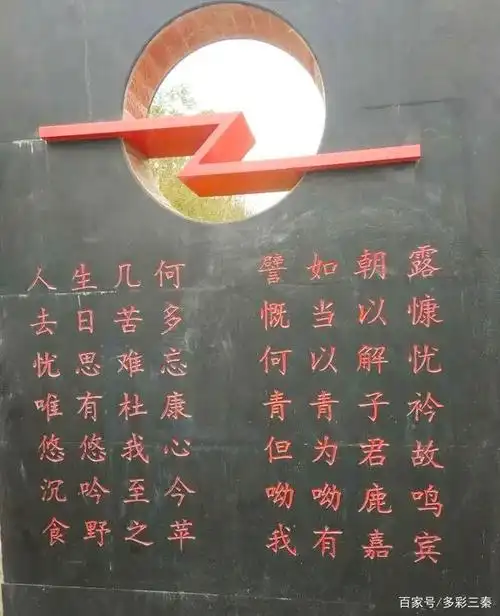 人生几何 譬如朝露
去日苦多 慨当以慷
忧思难忘 何以解忧
唯有杜康 青青子衿
悠悠我心 但为君故
沉吟至今 呦呦鹿鸣
食野之苹 我有嘉宾
百家号/多彩三秦